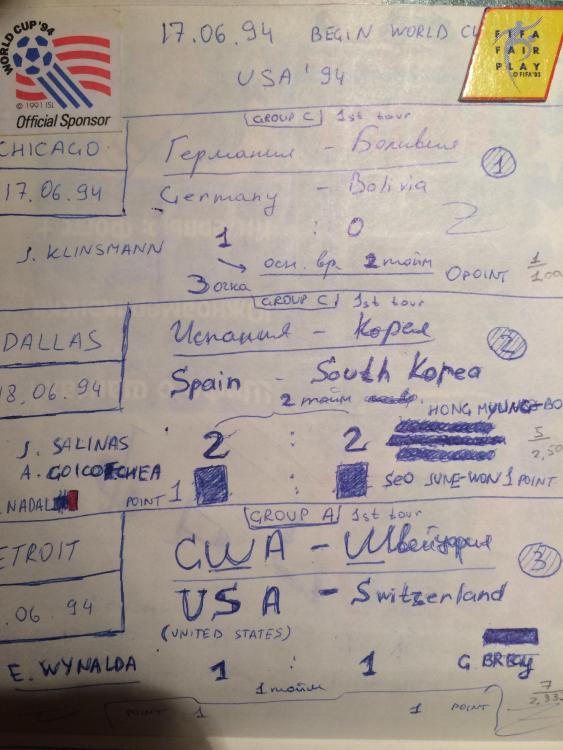 WORLD CUP '94
© 1991 ISL
Official Sponsor
17.06.94 BEGIN WORLD
USA '94
FIFA
FAIR
PLAY
© FIFA'93
GROUP C 1st tour
CHICAGO
17.06.94
Германия - Боливия
1
Germany - Bolivia
1 : 0
J. KLINSMANN
осн. вр. 2 тайм
3 очка
0 POINT
1
GROUP C 1st tour
DALLAS
18.06.94
Испания - Корея
2
Spain - South Korea
2 тайм
J. SALINAS
2 : 2
HONG MYUNG-BO
5
2,50
A. GOICOECHEA
:
SEO JUNE-WON 1 POINT
NADAL
POINT 1
GROUP A 1st tour
ETROIT
.06 94
США - Швейцария
3
USA - Switzerland
(UNITED STATES)
E. WYNALDA
1 : 1
G BREGY
1 тайм
7
2,33
POINT 1
1 POINT